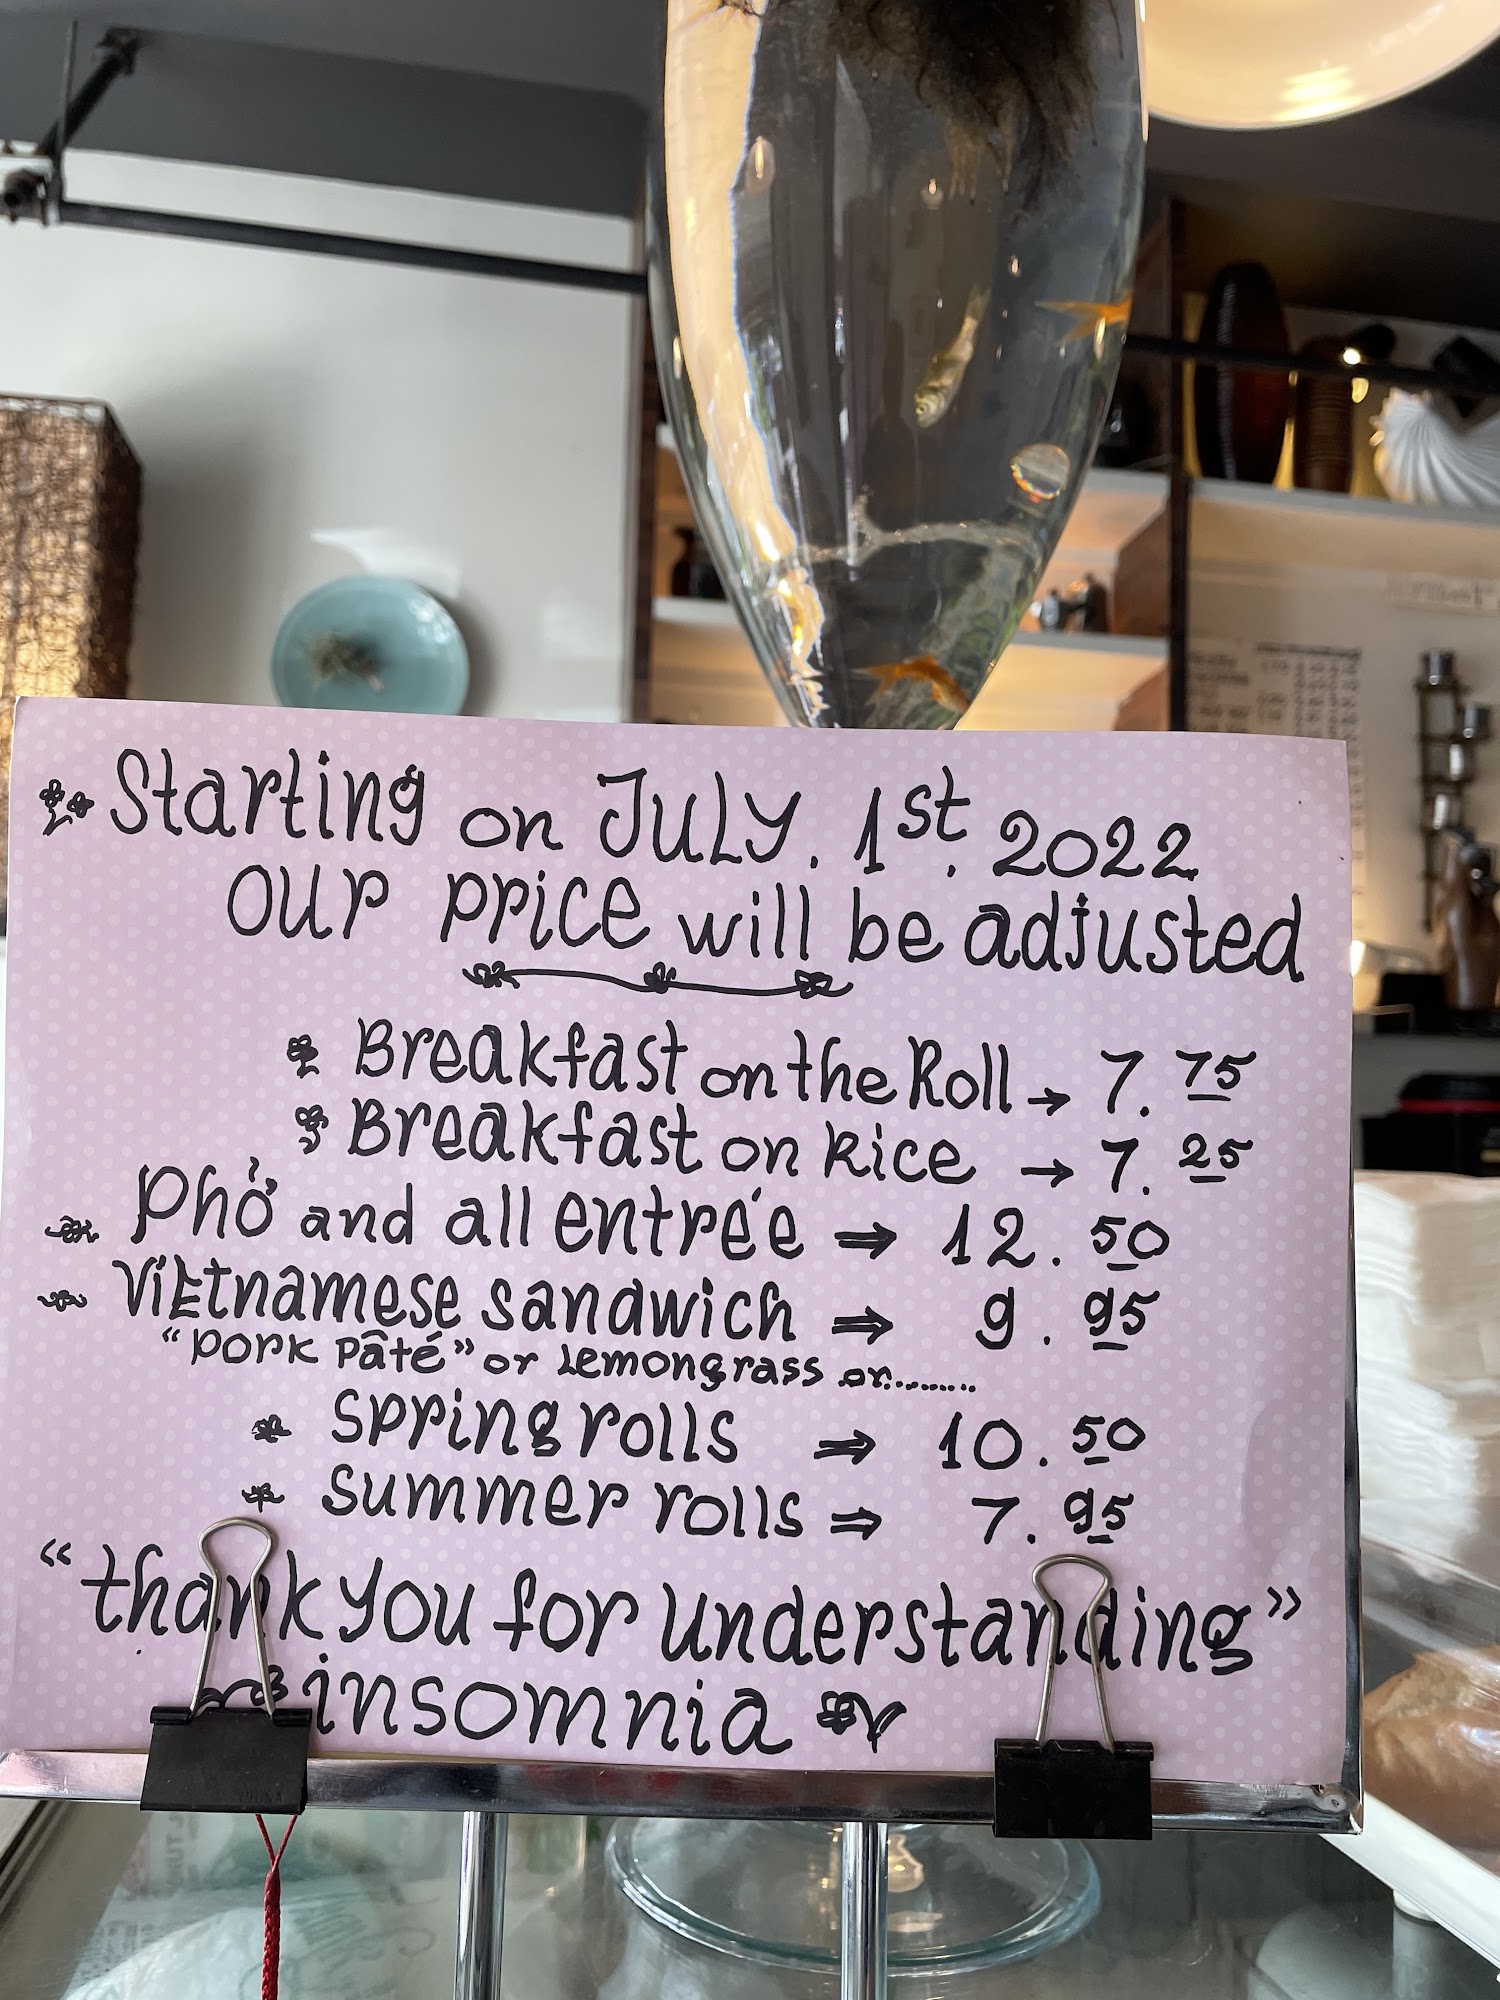 Starting on JULY. 1st. 2022
our price will be adjusted
Breakfast on the Roll → 7.75
Breakfast on Rice → 7.25
Phở and all entrée ⇒ 12.50
Vietnamese sandwich ⇒ 9.95
"pork pâté" or Lemongrass or........
spring rolls ⇒ 10.50
summer rolls ⇒ 7.95
"thank you for understanding"
insomnia